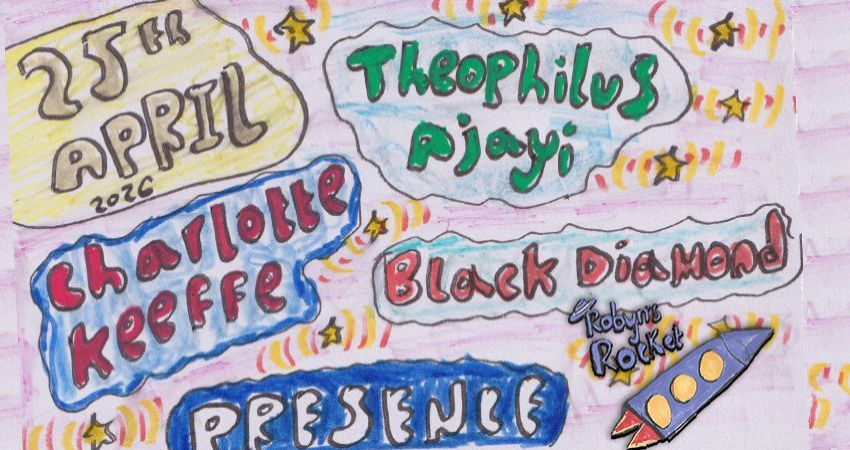 25TH
APRIL
2026
Theophilus
Ajayi
Charlotte
Keeffe
Black Diamond
Robyn's
Rocket
PRESENCE